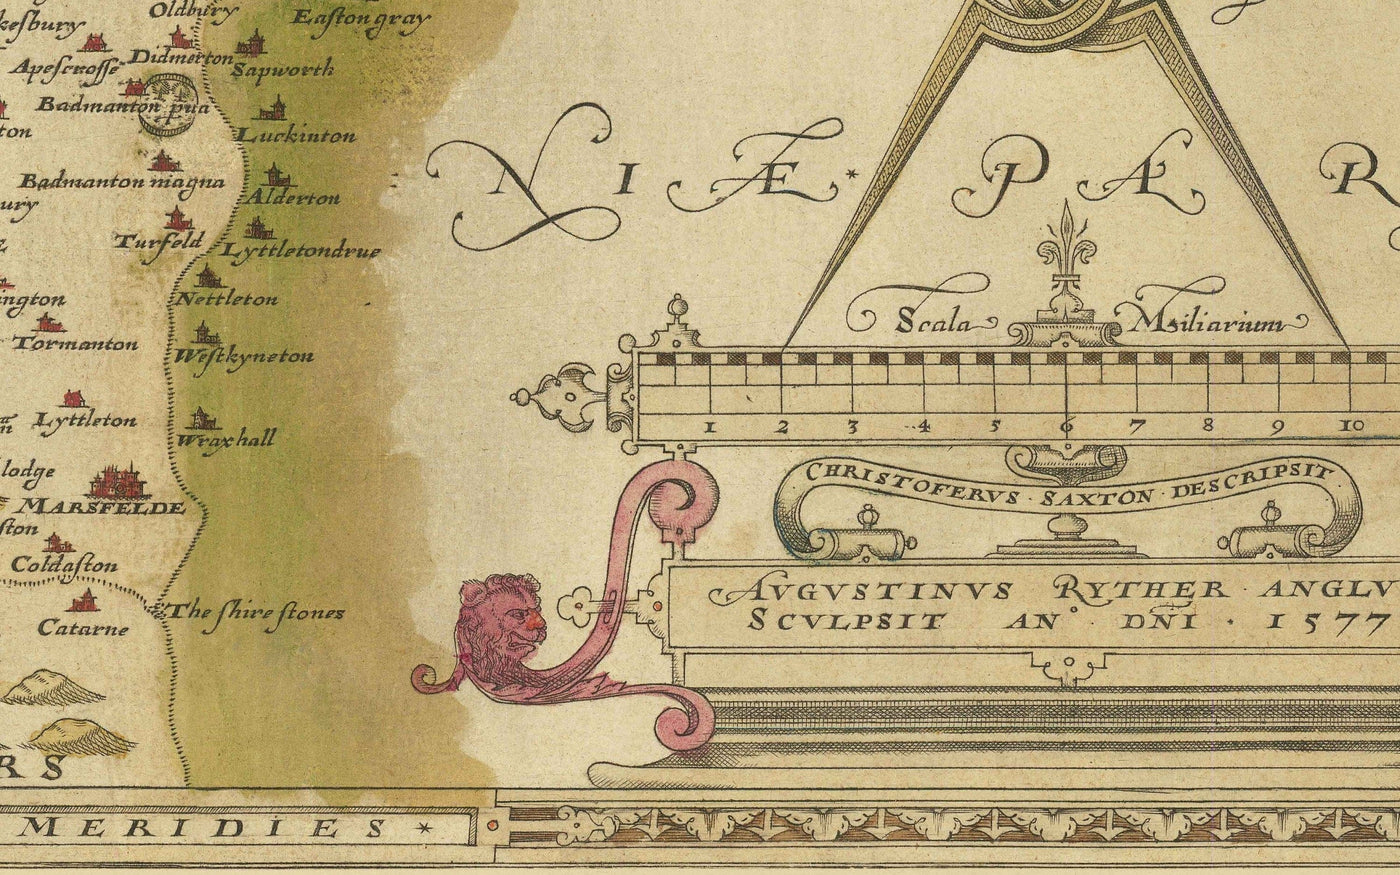 Oldbury
kesbury
Easton gray
Didmerton
Apescrosse
Sapworth
Badmanton pua
ton
Luckinton
Badmanton magna
Alderton
ury
Turfeld
Lyttletondrue
ington
Nettleton
Tormanton
Westkyneton
Lyttleton
Wraxhall
lodge
MARSFELDE
ston
Coldaston
The shire stones
Catarne
RS
MERIDIES *
NIÆ * PÆR
Scala Miliarium
1 2 3 4 5 6 7 8 9 10
CHRISTOFERVS · SAXTON · DESCRIPSIT ·
AVGVSTINVS RYTHER · ANGLV
SCVLPSIT AN° · DNI · 1577